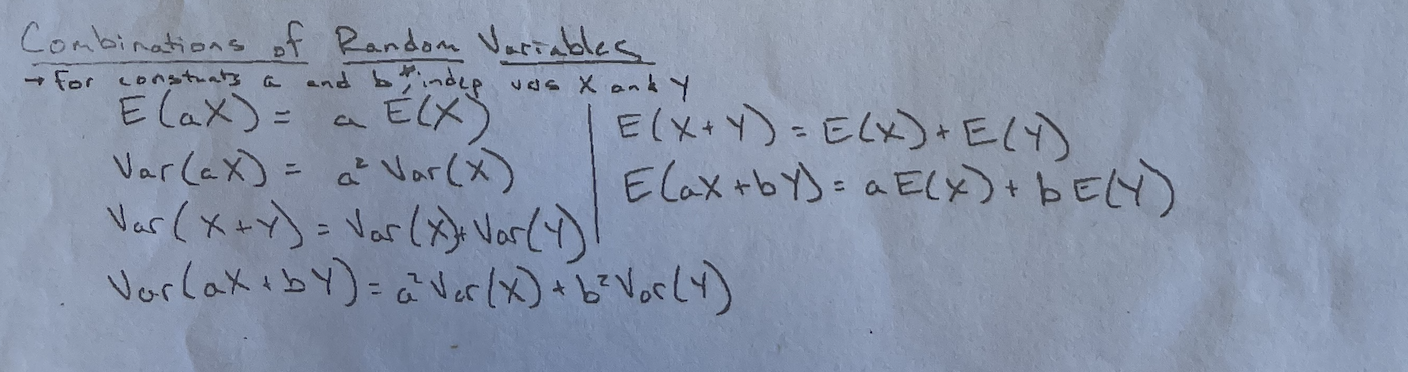 Combinations of Random Variables
→ For constants a and b*, indep vars X and Y
E(aX) = a E(X)
Var(aX) = a² Var(X)
Var(X+Y) = Var(X)+Var(Y)
Var(aX+bY) = a²Var(X) + b²Var(Y)
E(X+Y) = E(X) + E(Y)
E(aX+bY) = aE(X) + bE(Y)